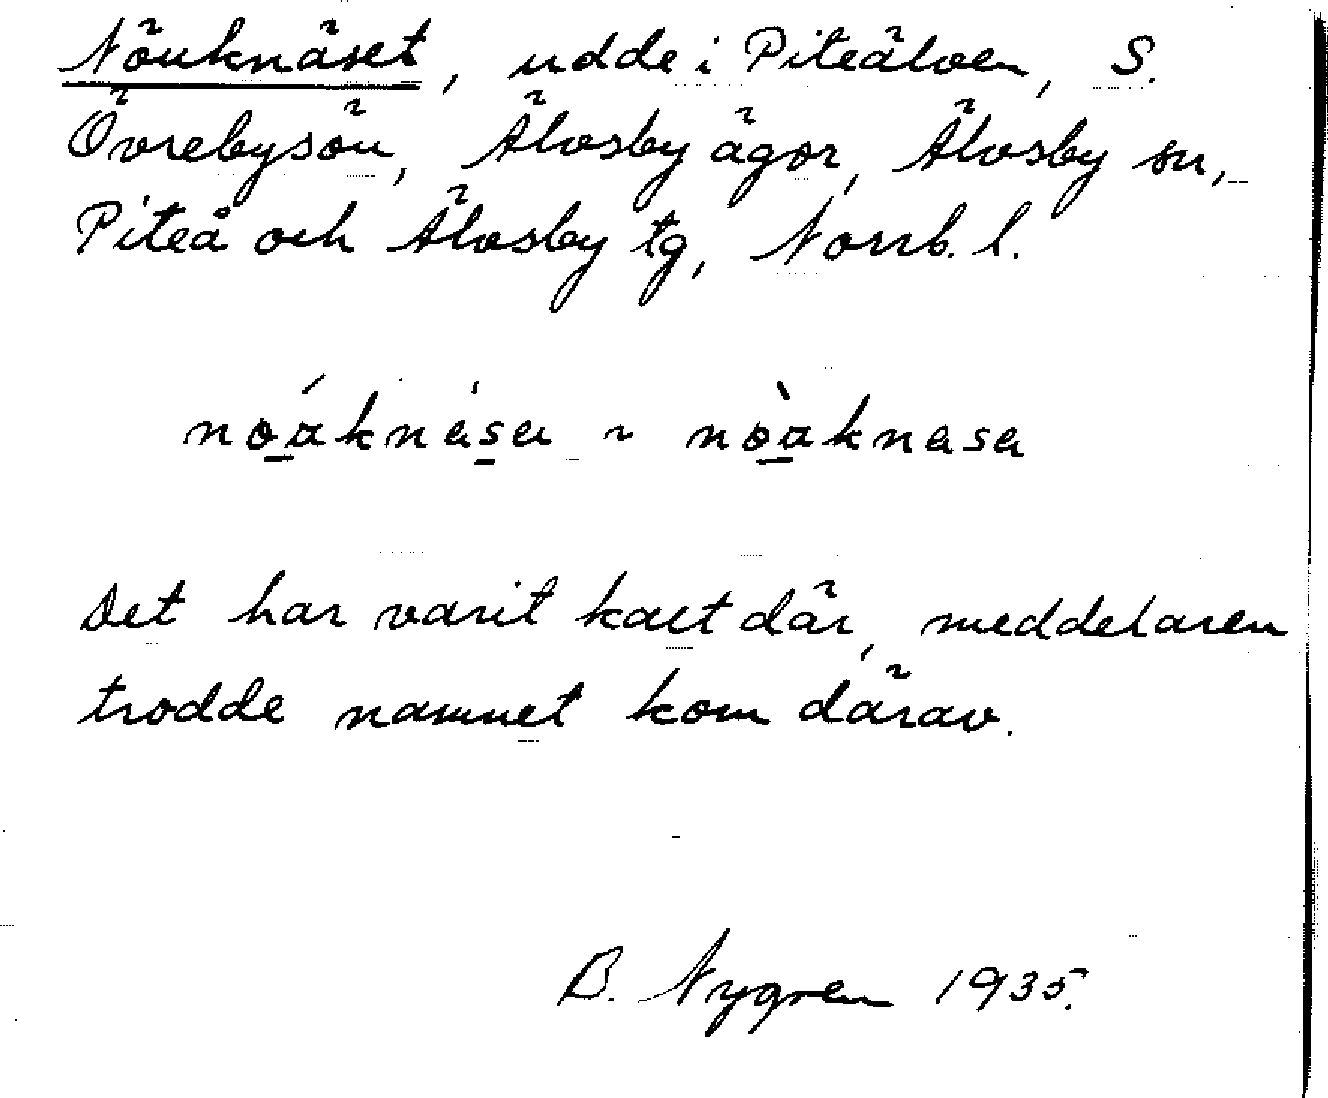 Nöuknäset, udde i Piteälven, S.
Övrebysön, Älvsby ägor, Älvsby sn,
Piteå och Älvsby tg, Norrb. l.
noaknäsa ~ nòaknasa
Det har varit kast där, meddelaren
trodde namnet kom därav.
B. Nygren 1935.